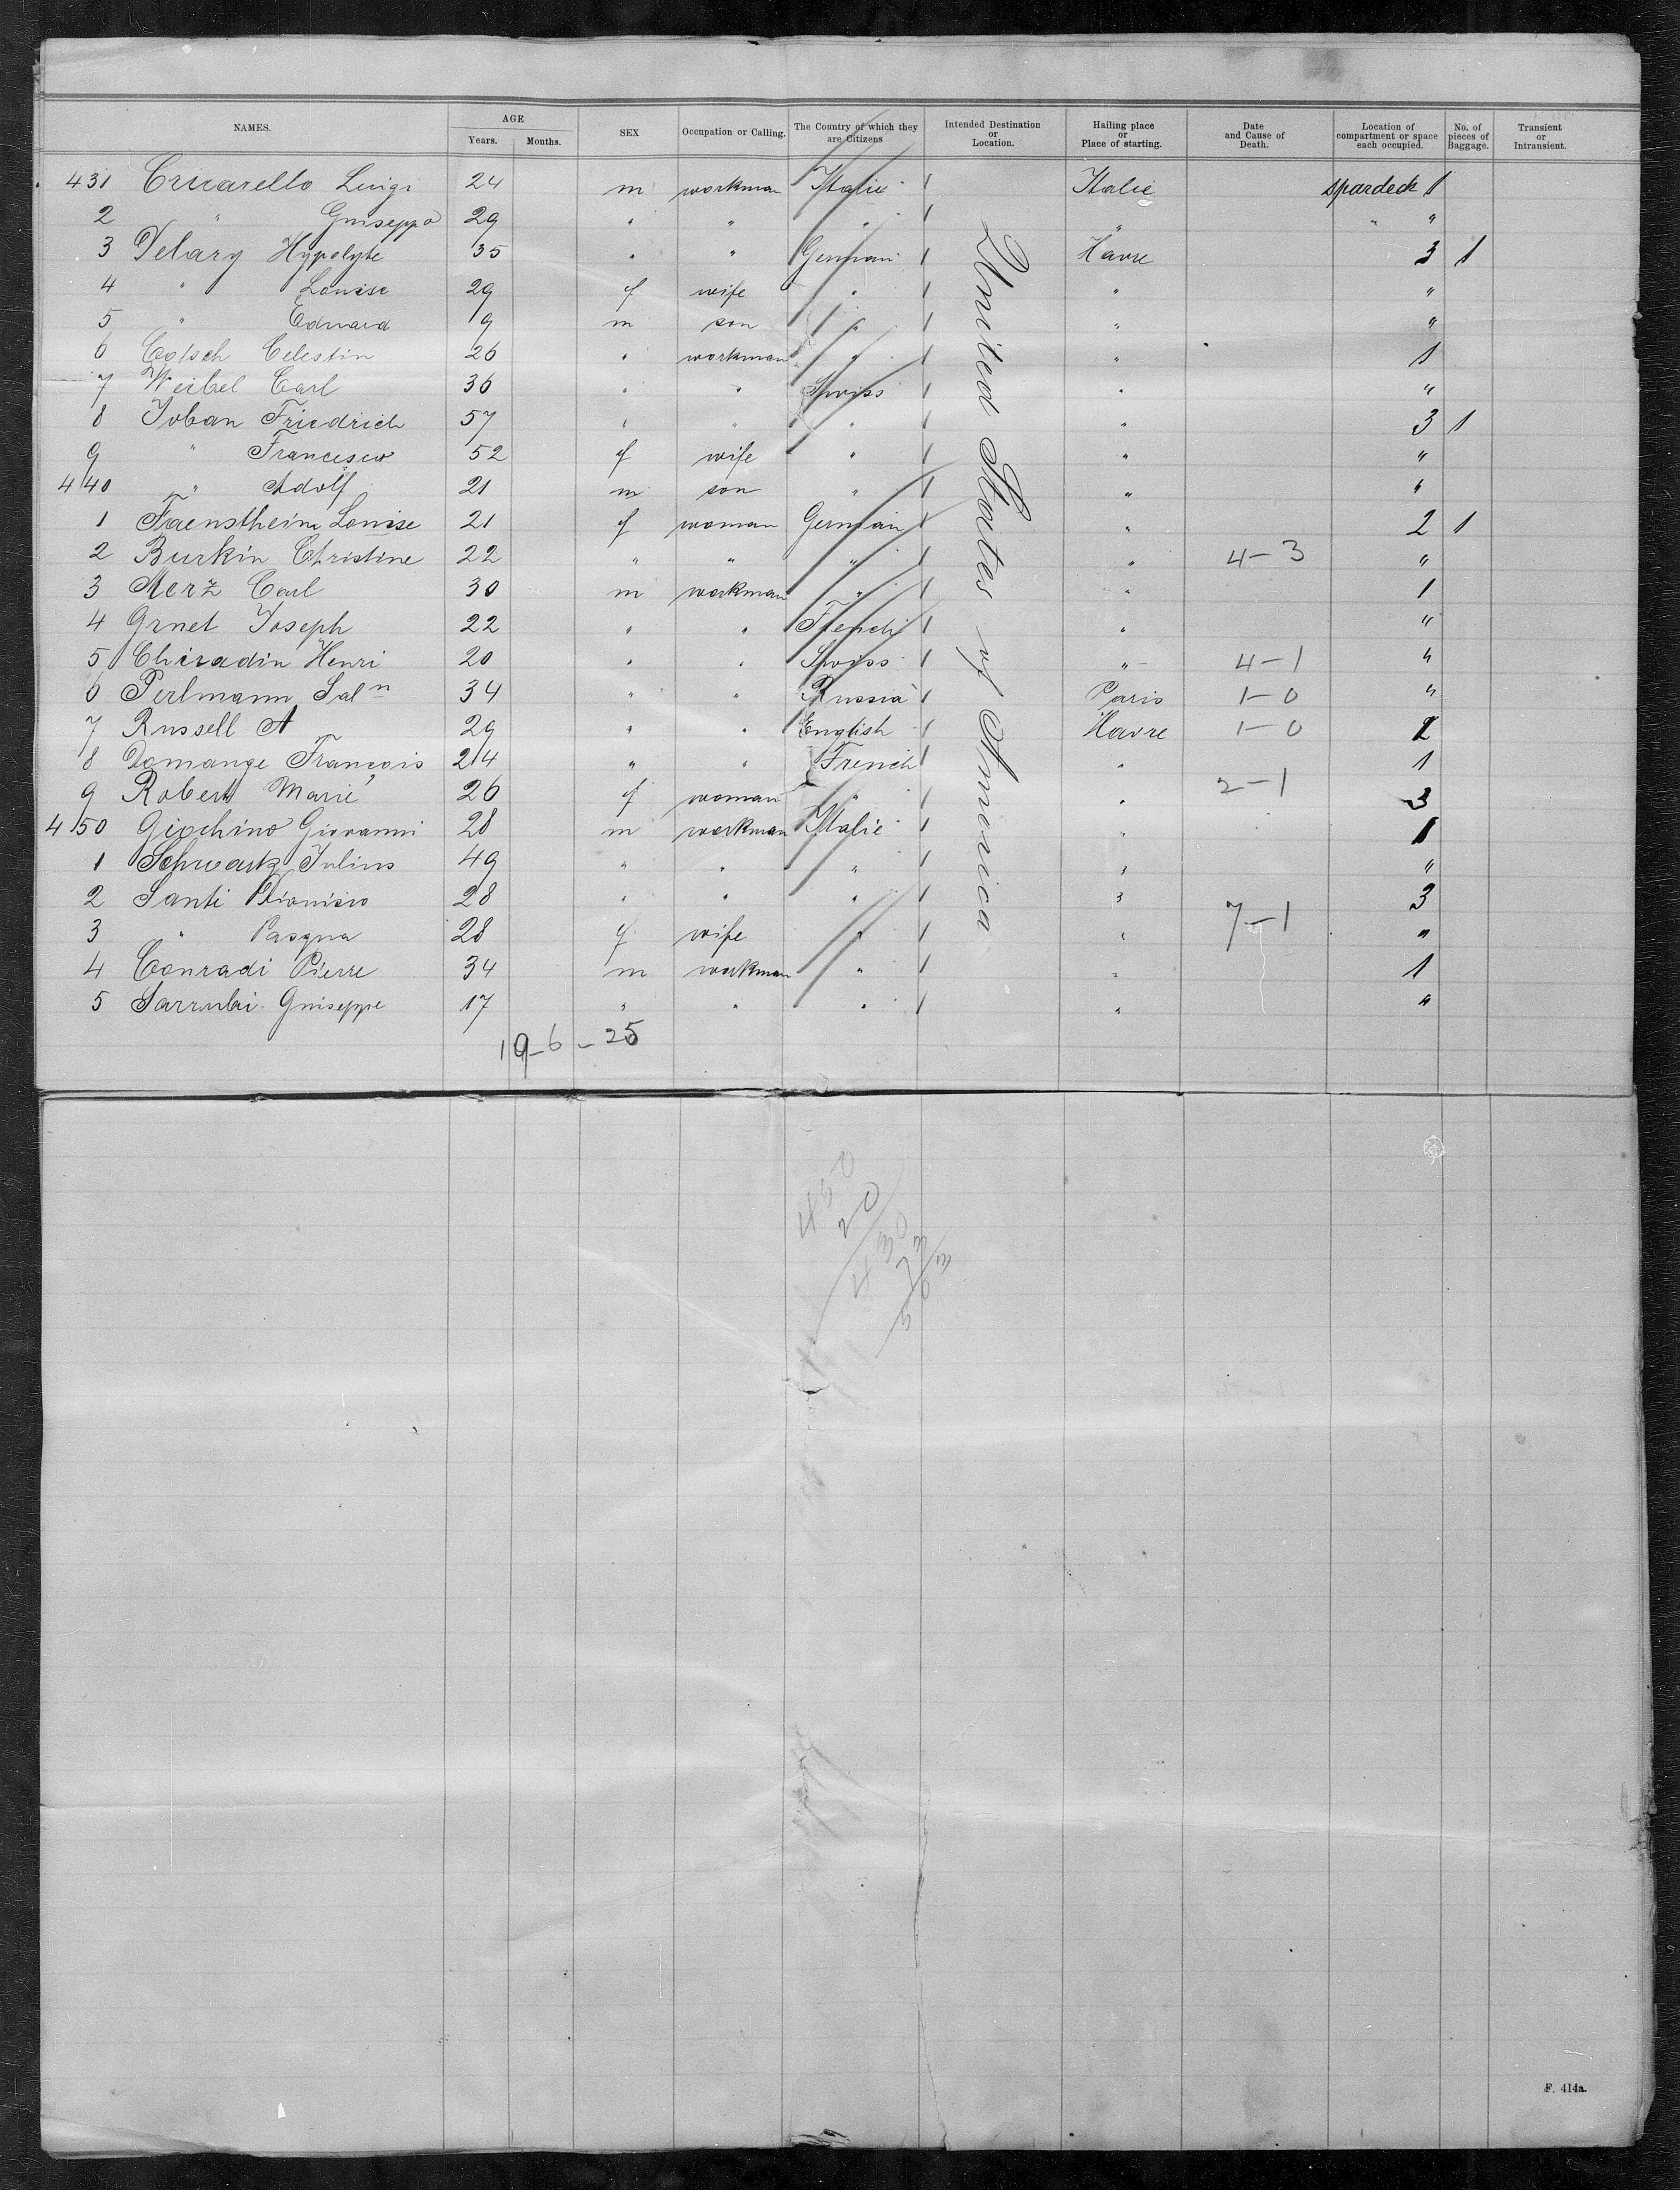 NAMES. AGE Years. Months. SEX Occupation or Calling. The Country of which they are Citizens Intended Destination or Location. Hailing place or Place of starting. Date and Cause of Death. Location of compartment or space each occupied. No. of pieces of Baggage. Transient or Intransient.
431 Luigi 24 m workman Italie Italie spardeck 1
2 " Guiseppo 29 " " " " " "
3 Delary Hypolyte 35 " " German Havre 3 1
4 " Louise 29 f wife " " "
5 " Eduard 9 m son " " "
6 Celestin 26 " workman " " 1
7 Weibel Carl 36 " " Swiss " "
8 Joban Friedrich 57 " " " " 3 1
9 " 52 f wife " " "
440 " Adolf 21 m son " " "
1 Louise 21 f woman German " 2 1
2 Burkin Christine 22 " " " " 4-3 "
3 Merz Carl 30 m workman " " 1
4 Grnet Joseph 22 " " French " "
5 Henri 20 " " Swiss " 4-1 "
6 Perlmann Saln 34 " " Russia Paris 1-0 "
7 Russell A 29 " " English Havre 1-0 2
8 Domange François 24 " " French " 1
9 Robert Marie 26 f woman " " 2-1 3
450 Giochino Giovanni 28 m workman Italie " 1
1 Schwartz Julius 49 " " " " "
2 Santi Dionisio 28 " " " " 3
3 " Pasqua 28 f wife " " 7-1 "
4 Conradi Pierre 34 m workman " " 1
5 Sarrubi Guiseppe 17 " " " " "
United States of America
19-6-25
450
20
F. 414a.